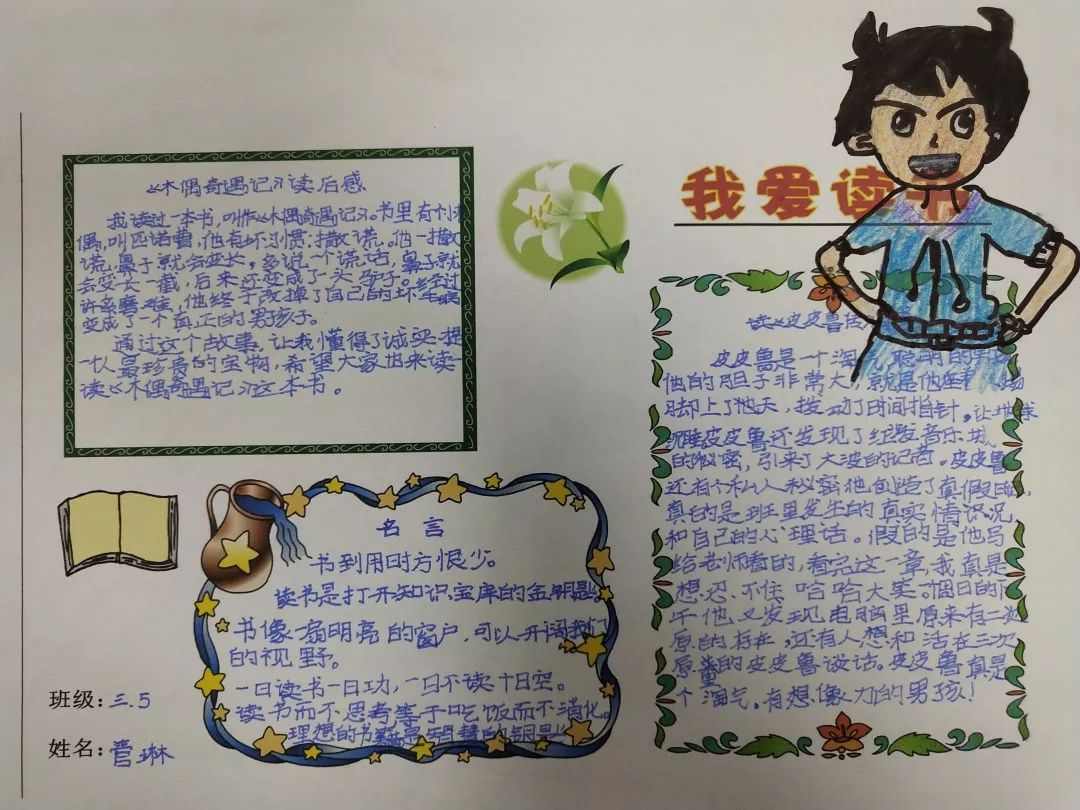 《木偶奇遇记》读后感
我读过一本书，叫作《木偶奇遇记》。书里有个木
偶，叫匹诺曹，他有坏习惯：撒谎。他一撒
谎，鼻子就会变长，多说一个谎话，鼻子就
会变长一截，后来还变成了一头驴子。经过
许多磨难，他终于改掉了自己的坏毛病
变成了一个真正的男孩子。
通过这个故事，让我懂得了诚实是
人最珍贵的宝物，希望大家也来读一
读《木偶奇遇记》这本书。
我爱读
名言
书到用时方恨少。
读书是打开知识宝库的金钥匙。
书像一扇明亮的窗户，可以开阔我们
的视野。
一日读书一日功，一日不读十日空。
读书而不思考等于吃饭而不消化。
理想的书籍是智慧的钥匙
班级：三.5
姓名：管琳
读《皮皮鲁
皮皮鲁是一个淘 聪明的男
他的胆子非常大，就是他
脚上了地天，拨动了时间指针。让地球
皮皮鲁还发现了 音乐
的秘密，引来了大波的记者。皮皮鲁
还有个私人秘密他创造了真假日记，
真的是班里发生的真实情识况，
和自己的心理话。假的是他写
给老师看的，看完这一章，我真是
想忍不住哈哈大笑。
他又发现电脑里原来有二次
原的存在，还有人想和活在三次
原的皮皮鲁谈话。皮皮鲁真是
个淘气，有想像力的男孩！